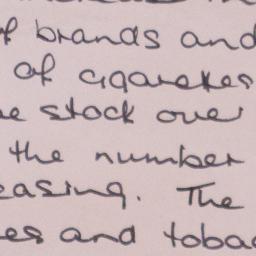 of brands and
of cigarettes
stock over
the number
easing. The
es and tobac